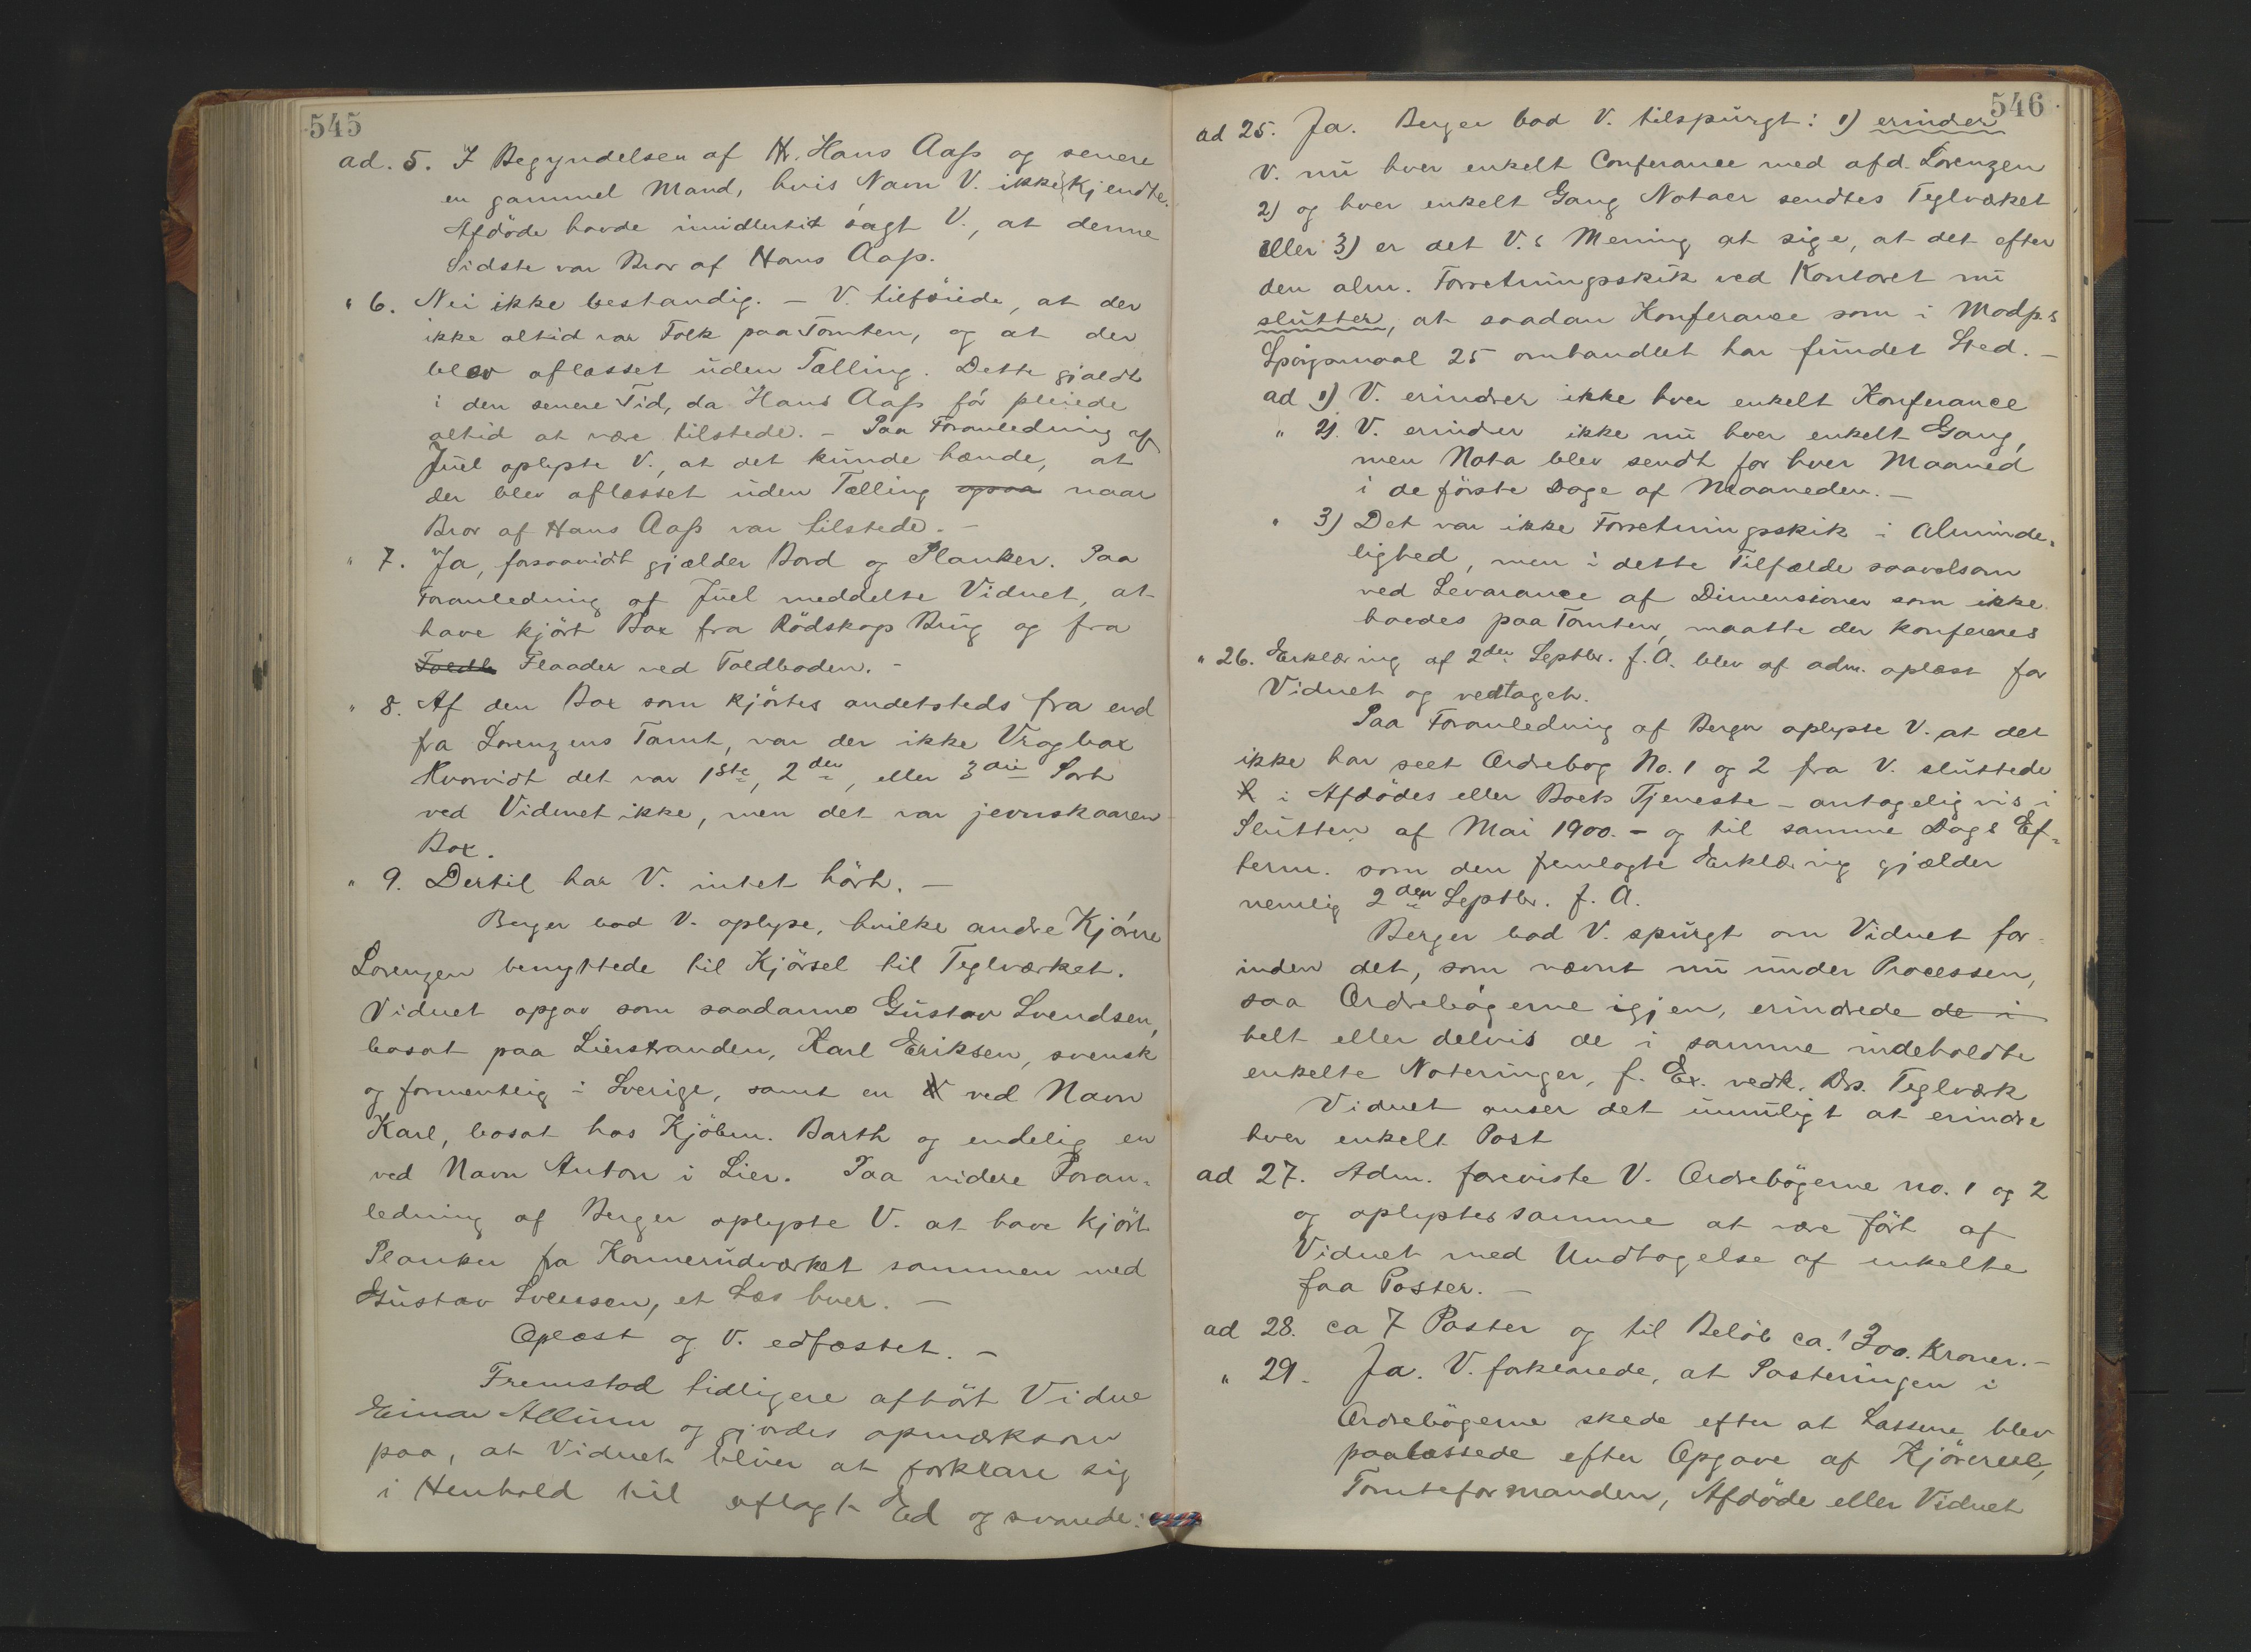 545
ad. 5. I Begyndelsen af Hr. Hans Aass og senere
en gammel Mand, hvis Navn V. ikke kjendte.
Afdøde havde imidlertid sagt V., at denne
Sidste var Bror af Hans Aass.
" 6. Nei ikke bestandig. – V. tilføiede, at der
ikke altid var Folk paa Tomten, og at der
blev aflæsset uden Tælling. Dette gjaldt
i den senere Tid, da Hans Aass før pleiede
altid at være tilstede. – Paa Foranledning af
Juel oplyste V., at det kunde hænde, at
der blev aflæsset uden Tælling ogsaa naar
Bror af Hans Aass var tilstede. –
" 7. Ja, forsaavidt gjælder Bord og Planker. Paa
Foranledning af Juel meddelte Vidnet, at
have kjørt Box fra Rødskog Brug og fra
Toldb Flaader ved Toldboden. –
" 8. Af den Box som kjørtes andetsteds fra end
fra Lorenzens Tomt, var der ikke Vragbox
Hvorvidt det var 1ste, 2den, eller 3die Sort
ved Vidnet ikke, men det var jevnskaaren
Box.
" 9. Dertil har V. intet hørt. –
Berger bad V. oplyse, hvilke andre Kjørere
Lorenzen benyttede til Kjørsel til Teglværket.
Vidnet opgav som saadanne Gustav Svendsen,
bosat paa Lierstranden, Karl Eriksen, svensk
og formentlig i Sverige, samt en N ved Navn
Karl, bosat hos Kjøbm. Barth og endelig en
ved Navn Anton i Lier. Paa videre Foran-
ledning af Berger oplyste V. at have kjørt
Planker fra Kamerudværket sammen med
Gustav Svensen, et Læs hver. –
Oplæst og V. edfæstet. –
Fremstod tidligere afhørt Vidne
Einar Allum og gjordes opmærksom
paa, at Vidnet bliver at forklare sig
i Henhold til aflagt Ed og svarede:
546
ad 25. Ja. Berger bad V. tilspurgt: 1) erindrer
V. nu hver enkelt Conferance med afd. Lorenzen
2) og hver enkelt Gang Notaer sendtes Teglværket
eller 3) er det V.s Mening at sige, at det efter
den alm. Forretningsskik ved Kontoret nu
slutter, at saadan Konferance som i Modp.s
Spørgsmaal 25 omhandlet har fundet Sted. –
ad 1) V. erindrer ikke hver enkelt Konferance
" 2). V. erindrer ikke nu hver enkelt Gang,
men Nota blev sendt for hver Maaned
i de første Dage af Maaneden. –
" 3) Det var ikke Forretningsskik i Alminde-
lighed, men i dette Tilfælde saavelsom
ved Levarance af Dimensioner som ikke
havdes paa Tomten, maatte der konfereres
" 26. Erklæring af 2den Septbr. f. A. blev af adm. oplæst for
Vidnet og vedtaget.
Paa Foranledning af Berger oplyste V. at det
ikke har seet Ordrebog No. 1 og 2 fra V. sluttede
i Afdødes eller Boets Tjeneste – antageligvis i
Slutten af Mai 1900. – og til samme Dags Ef-
term. som den fremlagte Erklæring gjælder
nemlig 2den Septbr. f. A.
Berger bad V. spurgt om Vidnet for-
inden det, som nævnt nu under Processen,
saa Ordrebøgerne igjen, erindrede de i
helt eller delvis de i samme indeholdte
enkelte Noteringer, f. Ex. vedk. Drs. Teglværk
Vidnet anser det umuligt at erindre
hver enkelt Post
ad 27. Adm. foreviste V. Ordrebøgerne no. 1 og 2
og oplystes samme at være ført af
Vidnet med Undtagelse af enkelte
faa Poster. –
ad 28. ca 7 Poster og til Beløb ca. 1300. Kroner. –
" 29. Ja. V. forklarede, at Posteringen i
Ordrebøgerne skede efter at Læssene blev
paalæssede efter Opgave af Kjørerne,
Tomteformanden, Afdøde eller Vidnet